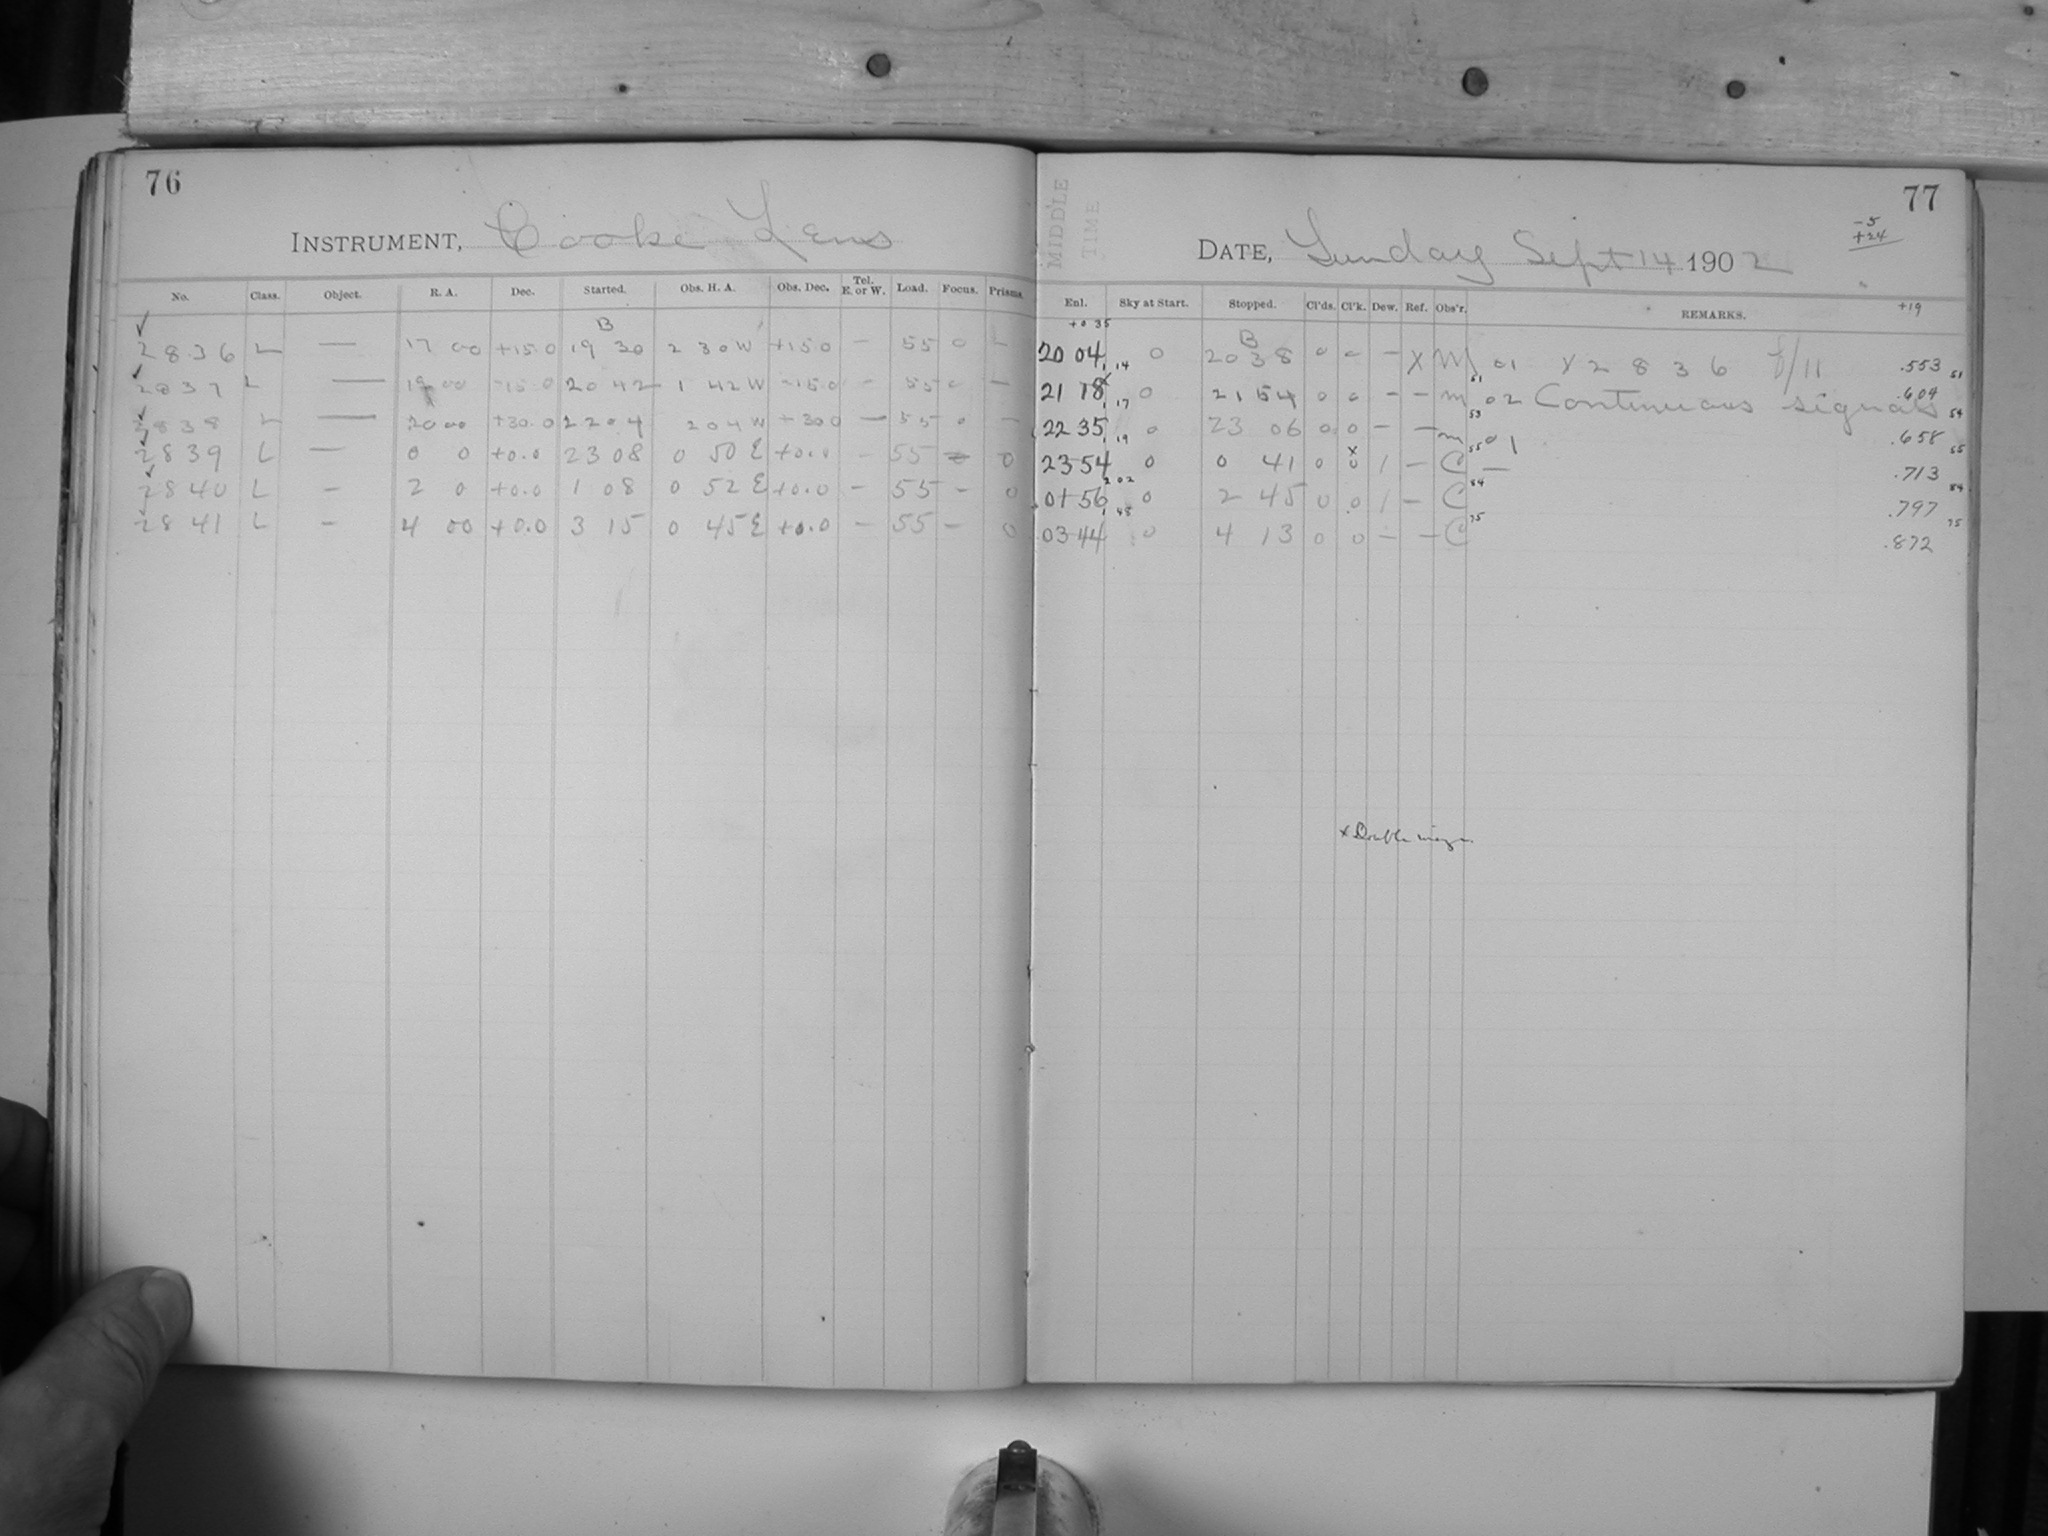 76
INSTRUMENT, Cooke Lens
No. Class. Object. R. A. Dec. Started. Obs. H. A. Obs. Dec. Tel. E. or W. Load. Focus. Prisms.
B
2836 L — 17 00 +15.0 19 30 2 30 W +15.0 — 55 0 —
2837 L — 19 00 -15.0 20 42 1 42 W -15.0 — 55 0 —
2838 L — 20 00 +30.0 22 04 2 04 W +30.0 — 55 0 —
2839 L — 0 0 +0.0 23 08 0 50 E +0.0 — 55 0
2840 L — 2 0 +0.0 1 08 0 52 E +0.0 — 55 — 0
2841 L — 4 00 +0.0 3 15 0 45 E +0.0 — 55 — 0
77
MIDDLE
TIME
-5
+24
DATE, Sunday Sept 14 1902
+19
Enl. Sky at Start. Stopped. Cl'ds. Cl'k. Dew. Ref. Obs'r. REMARKS.
+0 35
B
20 04 0 20 38 0 0 — X M 01 X 2836 f/11 .553
1 14 51 51
21 18 x 0 21 54 0 0 — — M 02 Continuous signals .604
1 17 53 54
22 35 0 23 06 0 0 — — M 01 .658
1 19 55 55
23 54 0 0 41 0 0 x 1 — C — .713
2 02 84 84
01 56 0 2 45 0 0 1 — C .797
1 48 75 75
03 44 0 4 13 0 0 — — C .872
x Double image